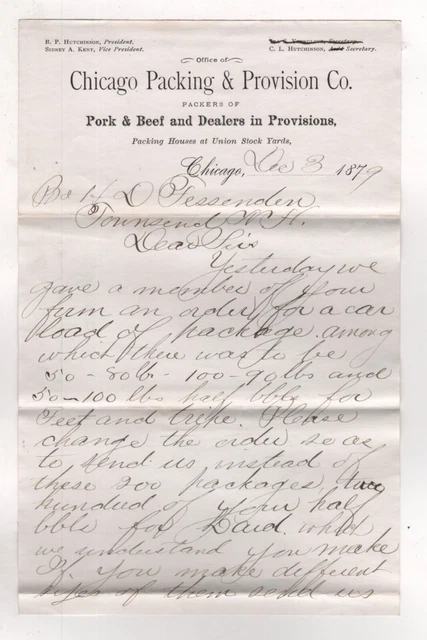 B. P. Hutchinson, President.
Sidney A. Kent, Vice President.
C. L. Hutchinson, Secretary.
Office of
Chicago Packing & Provision Co.
PACKERS OF
Pork & Beef and Dealers in Provisions,
Packing Houses at Union Stock Yards,
Chicago, Dec 3 1879
H D Fessenden
Townsend
Dear Sir
Yesterday we
gave a member of your
firm an order for a car
load of package among
which there was to be
50 - 80lb - 100 - 90 lbs and
50 - 100 lbs half bbls for
Feet and tripe. Please
change the order so as
to send us instead of
these 200 packages two
hundred of your half
bbls for Lard which
we understand you make
If you make different
sizes of them send us